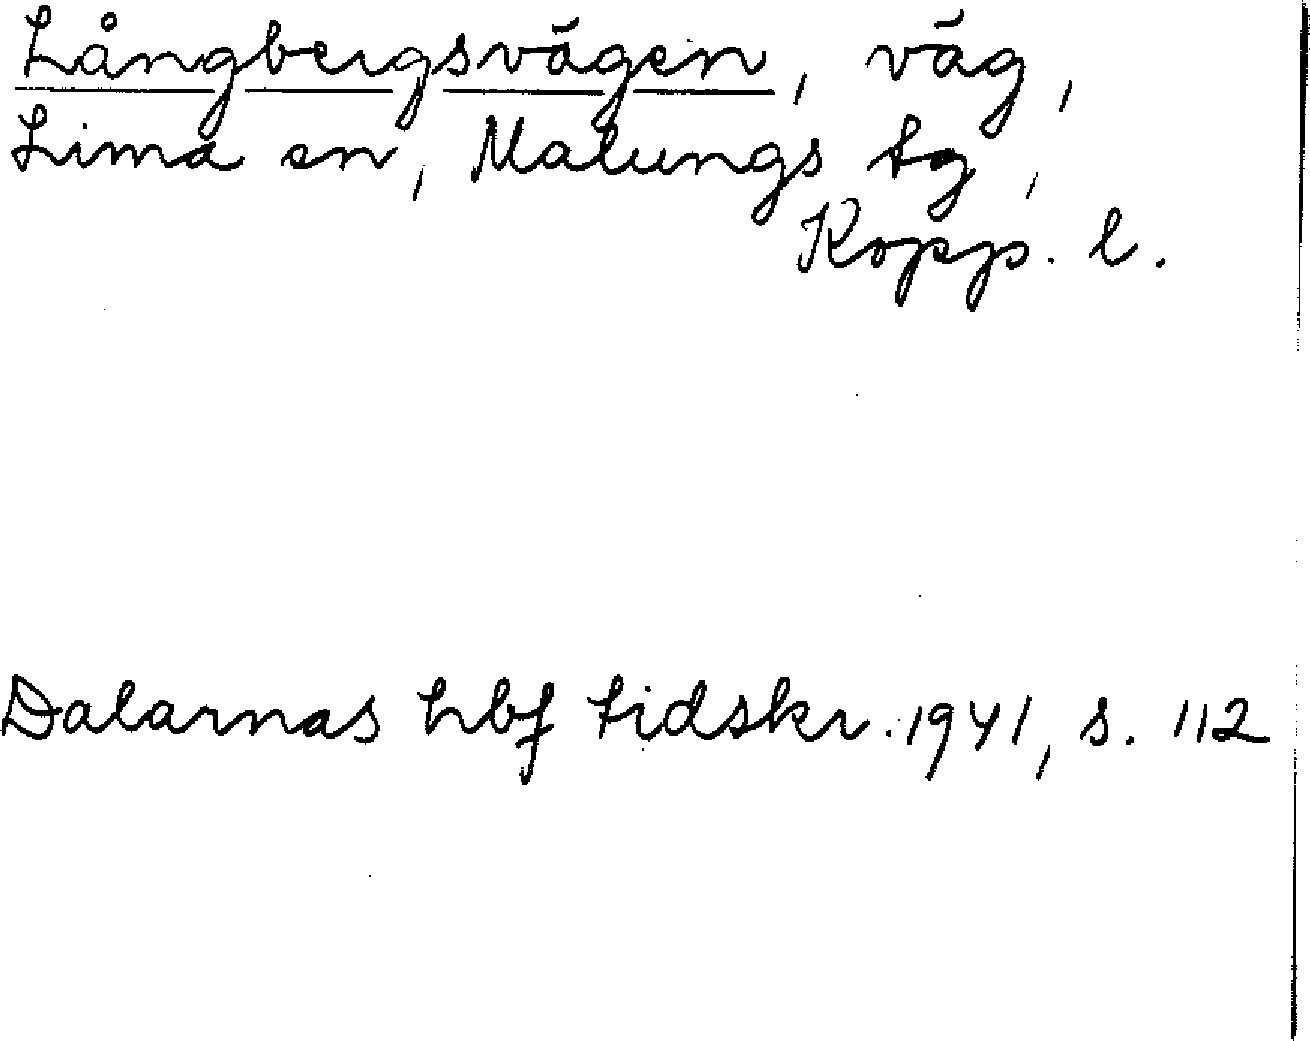 Långbergsvägen, väg,
Lima sn, Malungs tg,
Kopp. l.
Dalarnas hbf tidskr. 1941, s. 112